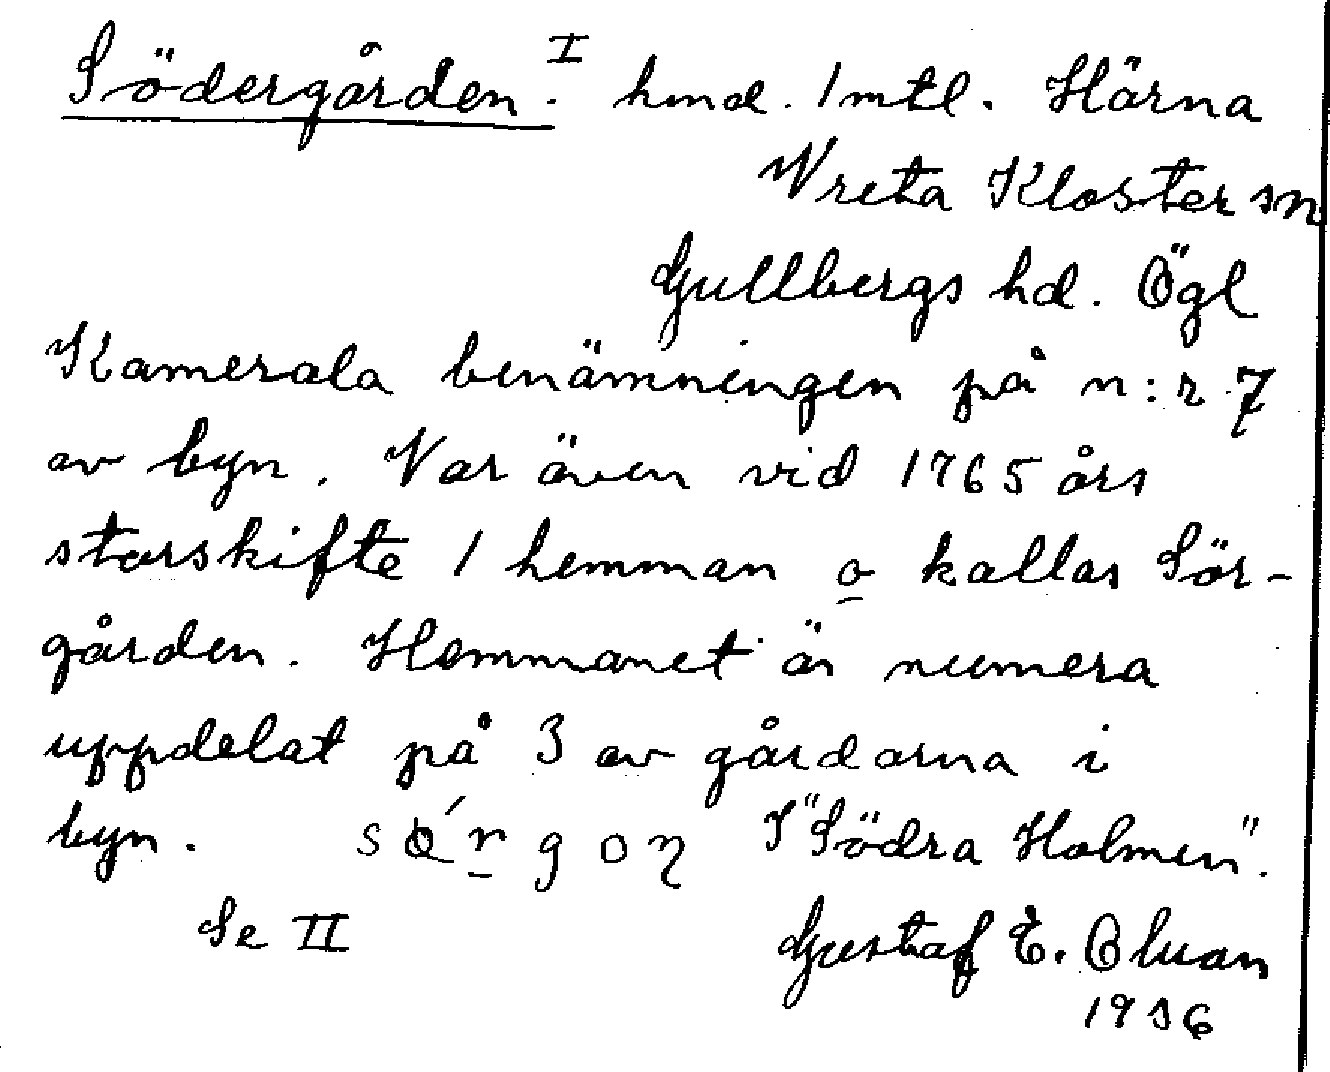 Södergården.ᴵ hmd. 1 mtl. Härna
Vreta Kloster sn
Gullbergs hd. Ögl
Kamerala benämningen på n:r 7
av byn. Var även vid 1765 års
storskifte 1 hemman o kallas Sör-
gården. Hemmanet är numera
uppdelat på 3 av gårdarna i
byn. "Södra Holmen".
Se II Gustaf E.